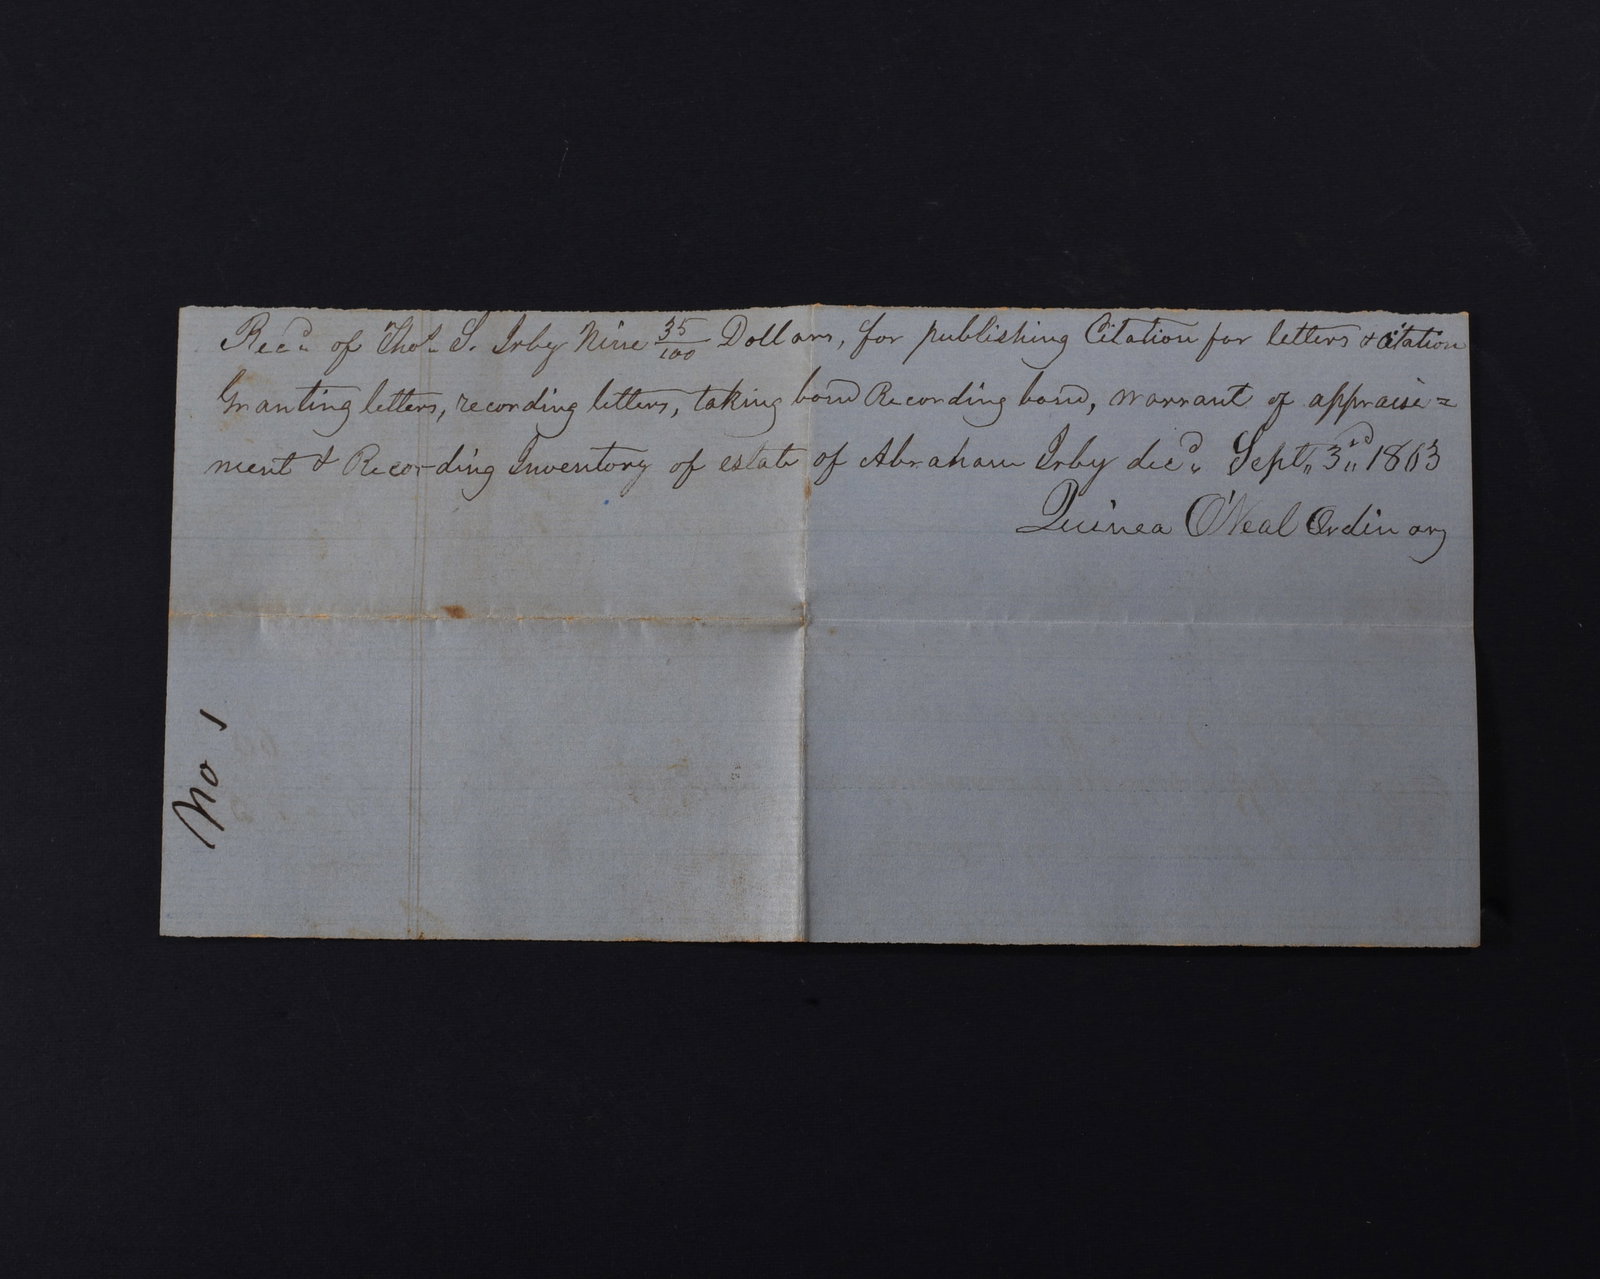 Recd. of Thos. S. Irby Nine 35/100 Dollars, for publishing Citation for letters & citation
Granting letters, recording letters, taking bond Recording bond, warrant of appraise=
ment & Recording Inventory of estate of Abraham Irby decd. Sept,, 3rd,, 1863
Quinea O'Neal Ordinary
No 1